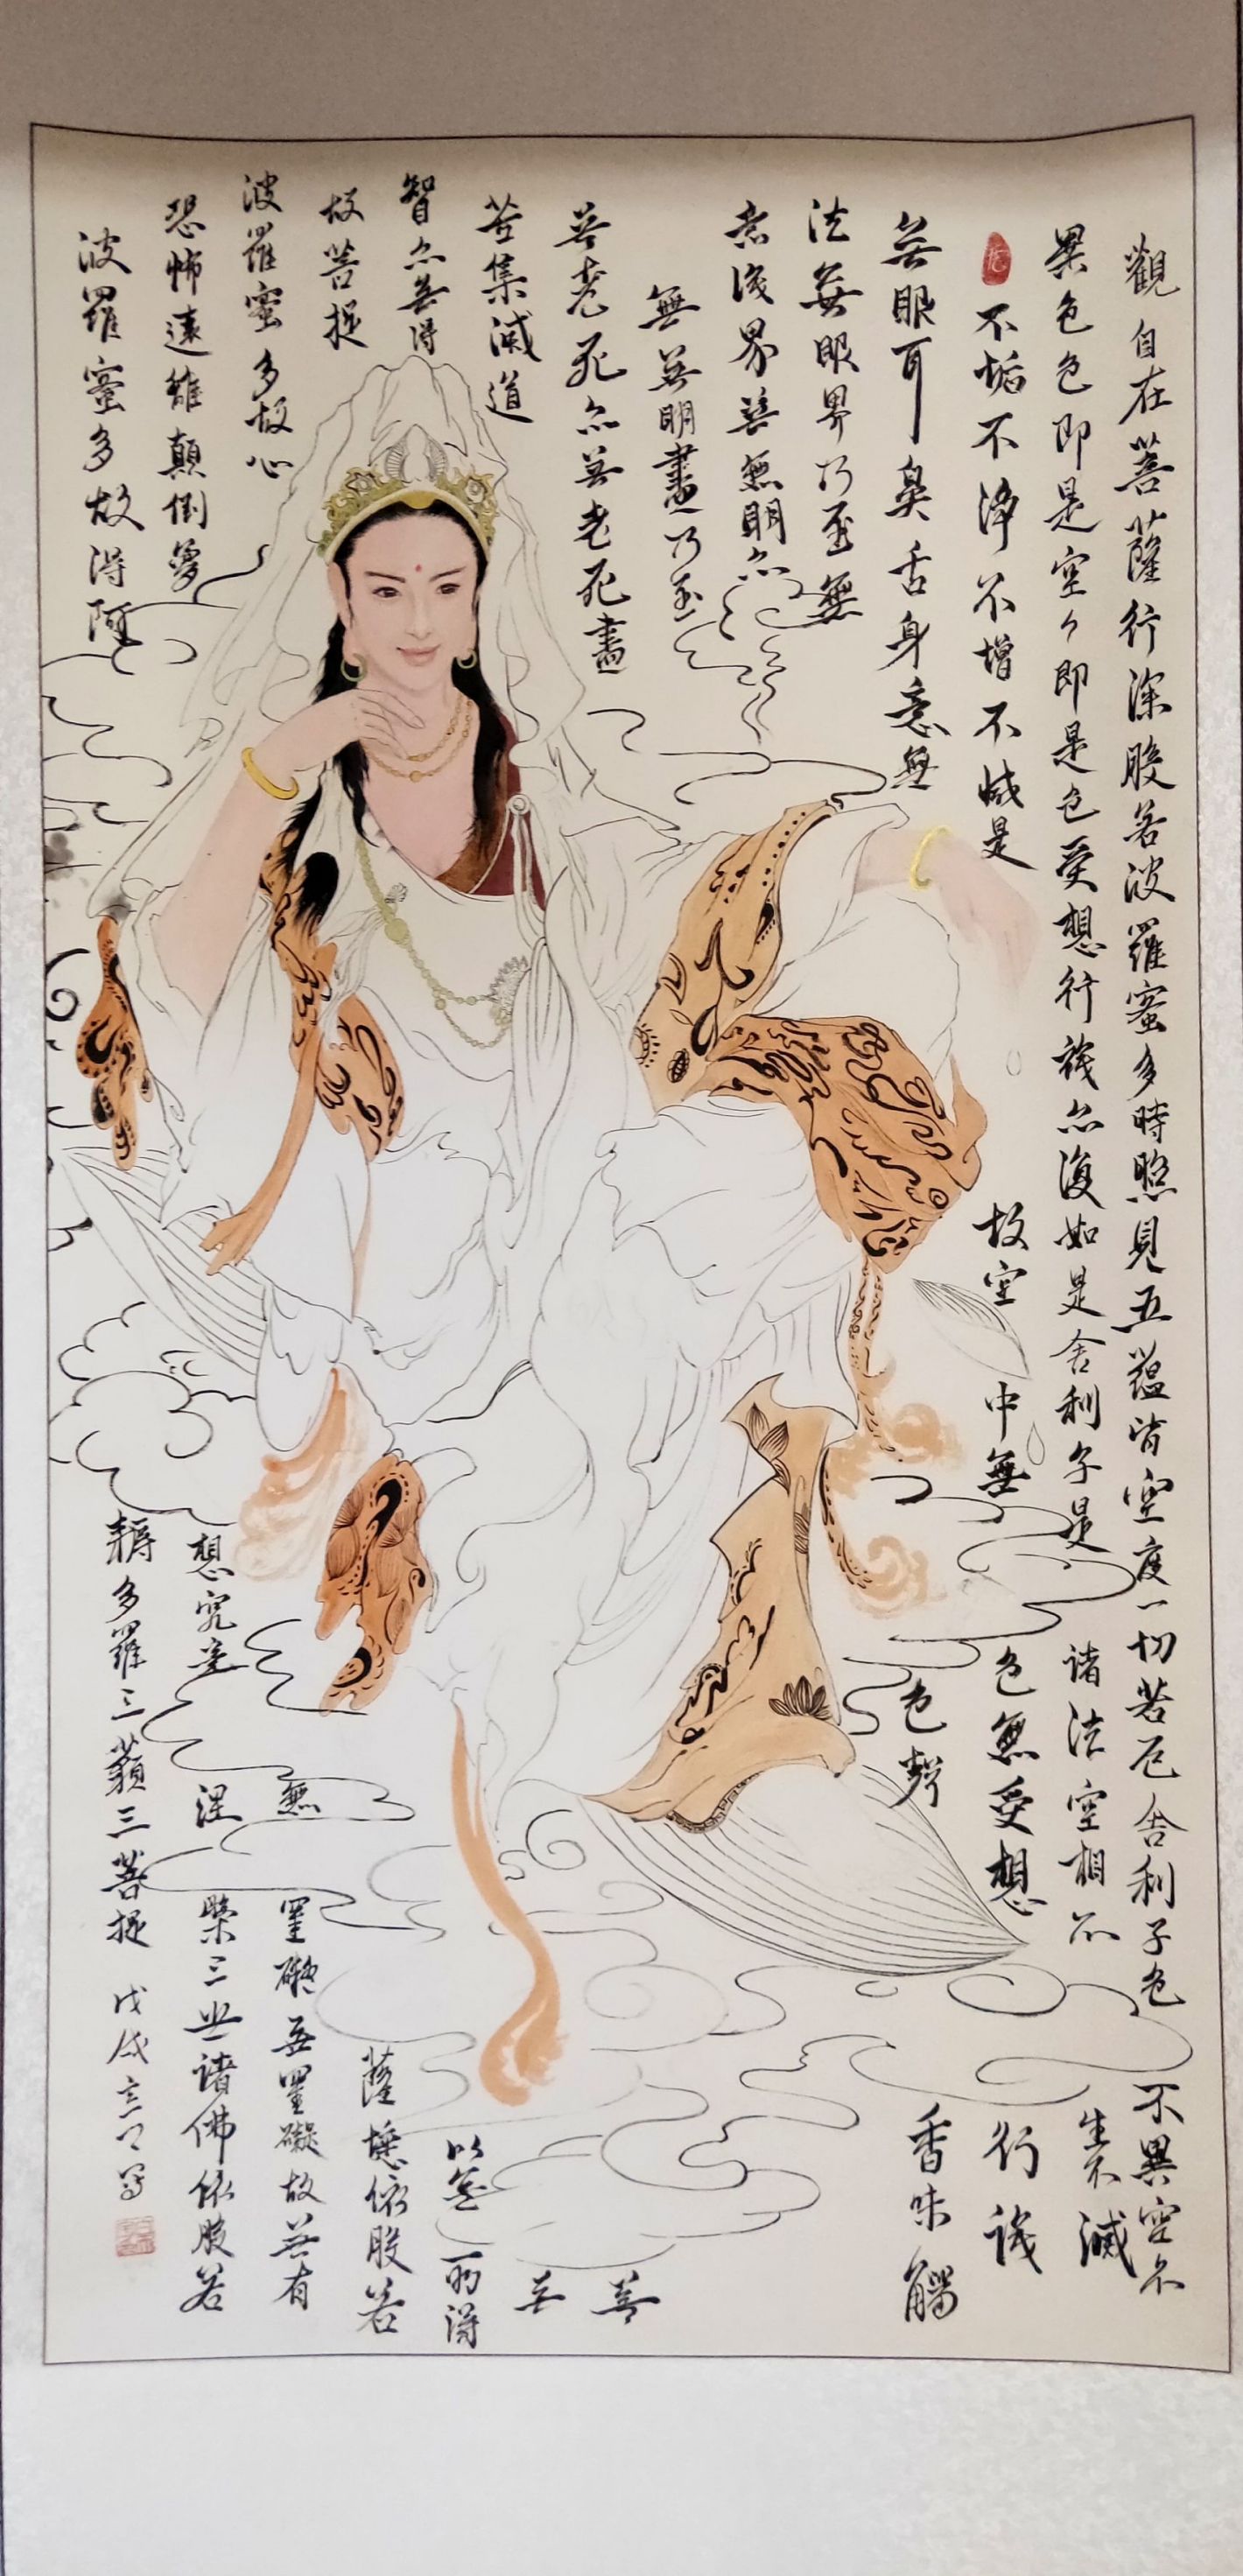 觀自在菩薩行深般若波羅蜜多時照見五蘊皆空度一切苦厄舍利子色不異空不
異色色即是空々即是色受想行識亦復如是舍利子是諸法空相不生不滅
不垢不淨不增不減是故空中無色無受想行識
無眼耳鼻舌身意無色聲香味觸
法無眼界乃至無
意識界無無明亦
無無明盡乃至
無老死亦無老死盡無
苦集滅道無
智亦無得以無所得
故菩提薩埵依般若
波羅蜜多故心無罣礙無罣礙故無有
恐怖遠離顛倒夢想究竟涅槃三世諸佛依般若
波羅蜜多故得阿耨多羅三藐三菩提
戊戌写